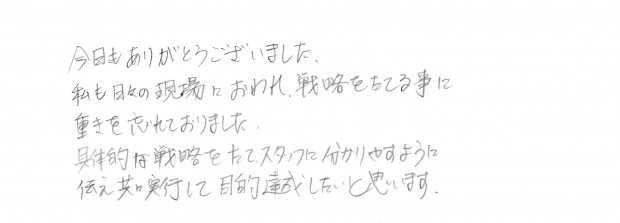 今日もありがとうございました。
私も日々の現場におわれ、戦略をたてる事に
重きを忘れておりました。
具体的な戦略をたてスタッフに分かりやすように
伝え共に実行して目的達成したいと思います。